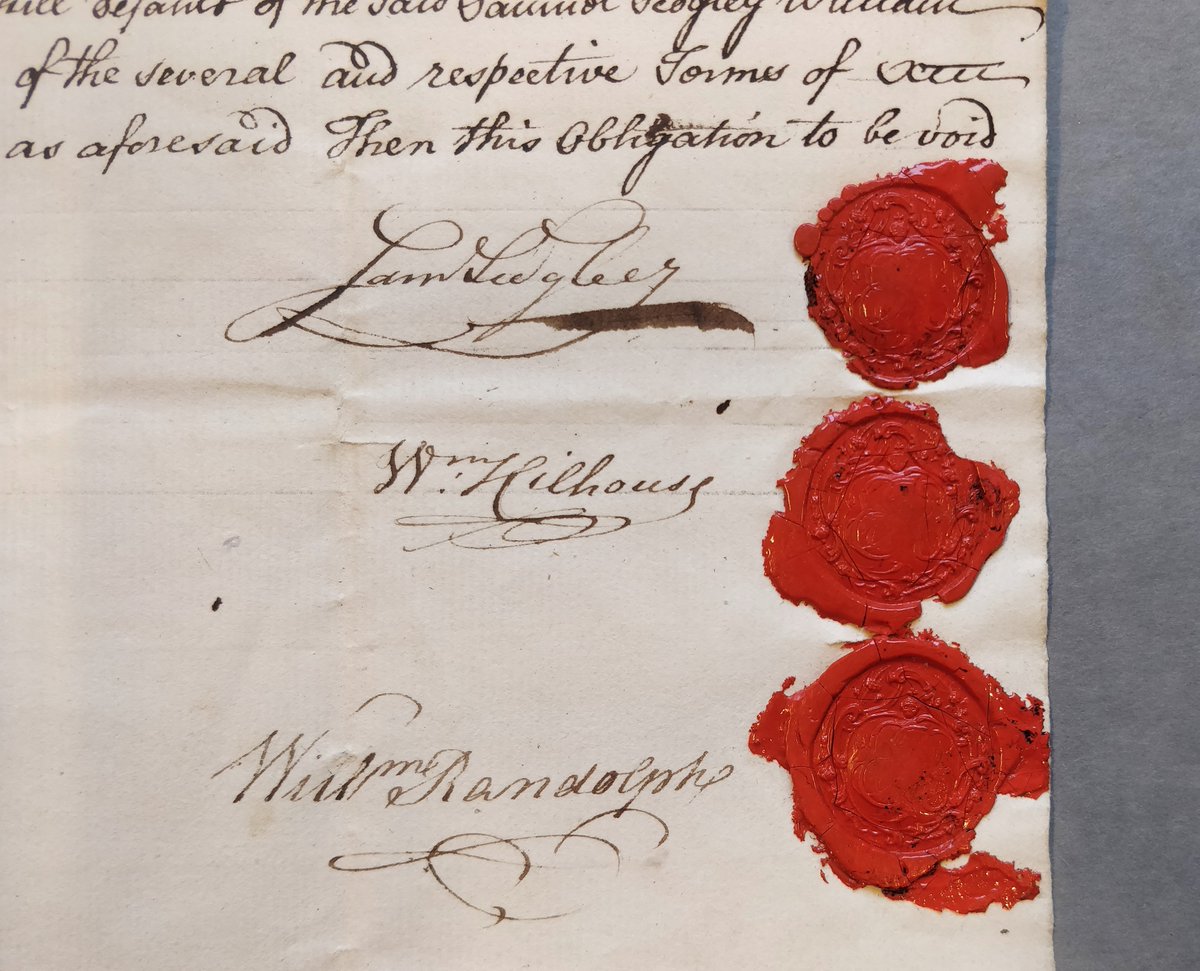 of the said Samuel Sedgley William
of the several and respective Termes of
as aforesaid Then this Obligation to be void
Sam Sedgley
Wm. Hilhouse
Willm Randolph